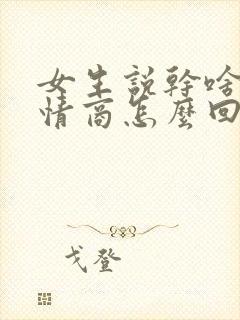 女生説幹啥
情商怎麼回
戈登